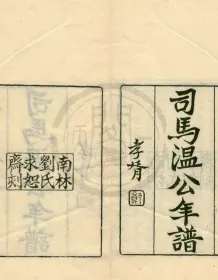 司馬溫公年譜
孝胥
南林
劉氏
求恕
齋刻